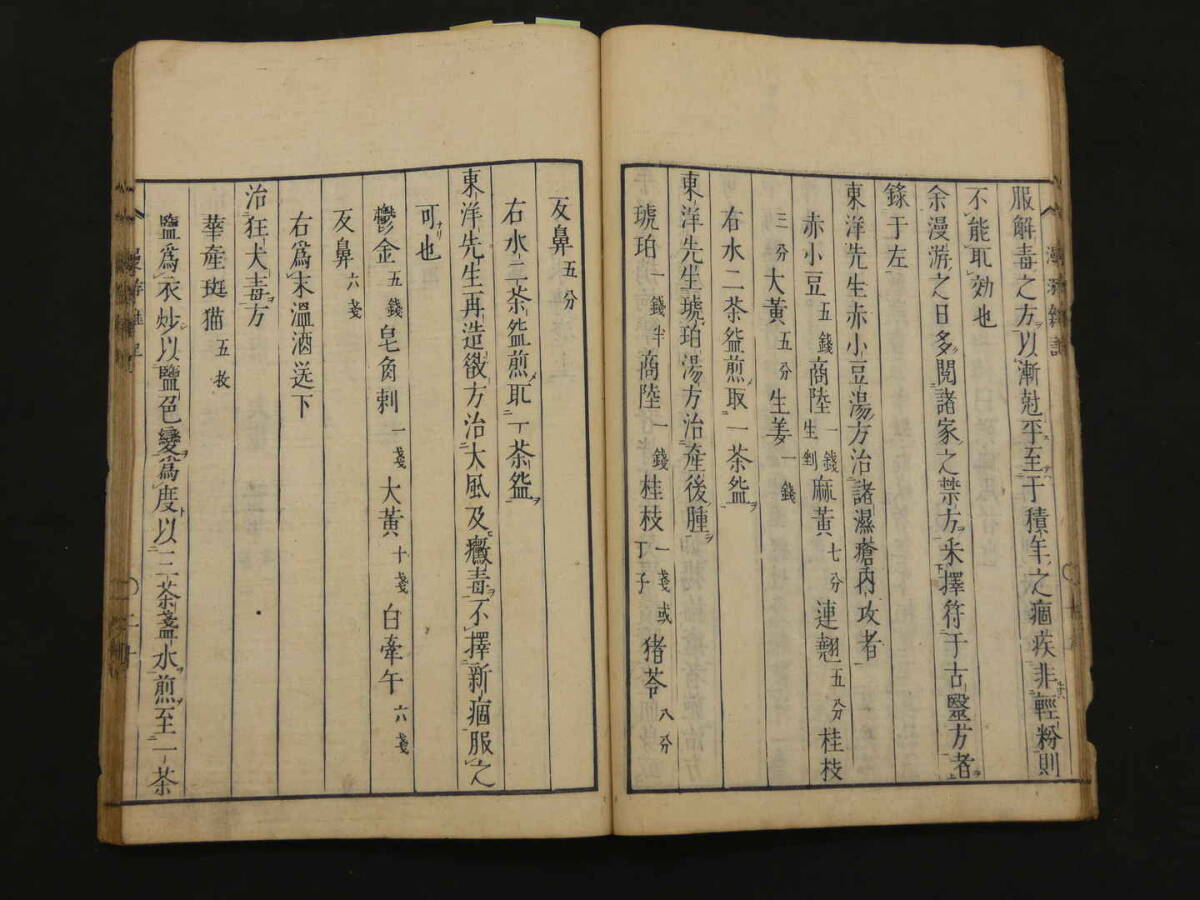 服解毒之方以漸尅平至于積年之痼疾非輕粉則
不能取効也
余漫游之日多閱諸家之禁方采擇符于古醫方者
錄于左
東洋先生赤小豆湯方治諸濕瘡內攻者
赤小豆五錢商陸一錢生剉麻黃七分連翹五分桂枝
三分大黃五分生姜一錢
右水二茶盌煎取一茶盌
東洋先生琥珀湯方治產後腫
琥珀一錢半商陸一錢桂枝一戔或丁子猪苓八分
反鼻五分
右水三茶盌煎取一茶盌
東洋先生再造散方治大風及黴毒不擇新痼服之
可也
鬱金五錢皂角刺一戔大黃十戔白牽午六戔
反鼻六戔
右爲末溫酒送下
治狂犬毒方
華產斑猫五枚
鹽爲衣炒以鹽色變爲度以二茶盞水煎至一茶